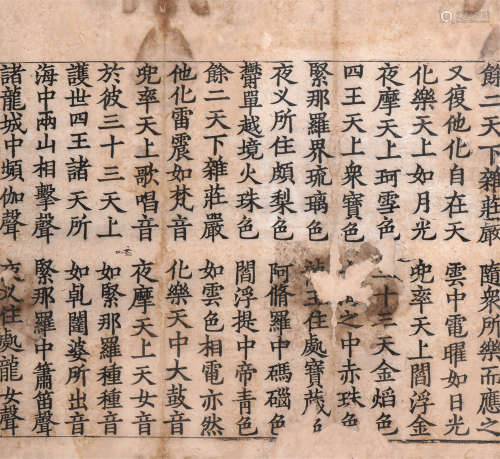 餘二天下雜莊嚴 隨衆所樂而應之
又復他化自在天 雲中電曜如日光
化樂天上如月光 兜率天上閻浮金
夜摩天上珂雪色 十三天金焰色
四王天上衆寶色 之中赤珠色
緊那羅界琉璃色 王住處寶色
夜叉所住頗梨色 阿脩羅中碼碯色
鬱單越境火珠色 閻浮提中帝青色
餘二天下雜莊嚴 如雲色相電亦然
他化雷震如梵音 化樂天中大鼓音
兜率天上歌唱音 夜摩天上天女音
於彼三十三天上 如緊那羅種種音
護世四王諸天所 如乹闥婆所出音
海中兩山相擊聲 緊那羅中簫笛聲
諸龍城中頻伽聲 夜叉住處龍女聲